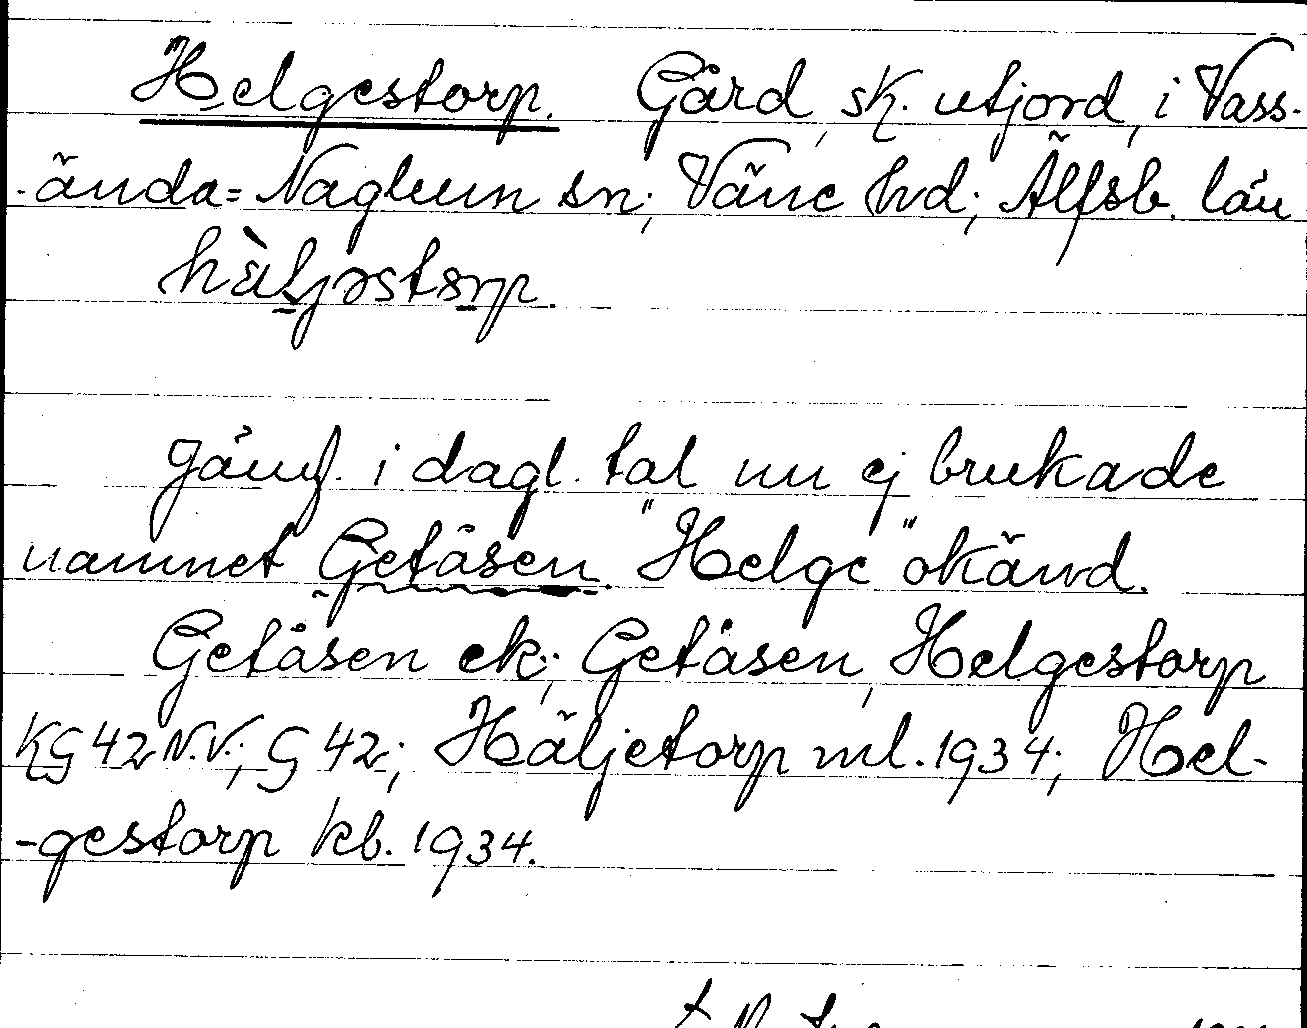 Helgestorp. Gård, sk. utjord, i Vass-
-ända=Naglum sn; Väne hd; Älfsb. län
hàljəstɔrp.
Jämf. i dagl. tal nu ej brukade
namnet Getåsen. "Helge" okänd.
Getåsen ek; Getåsen, Helgestorp
KG 42 N.V.; G 42; Häljetorp ml. 1934; Hel-
-gestorp kb. 1934.